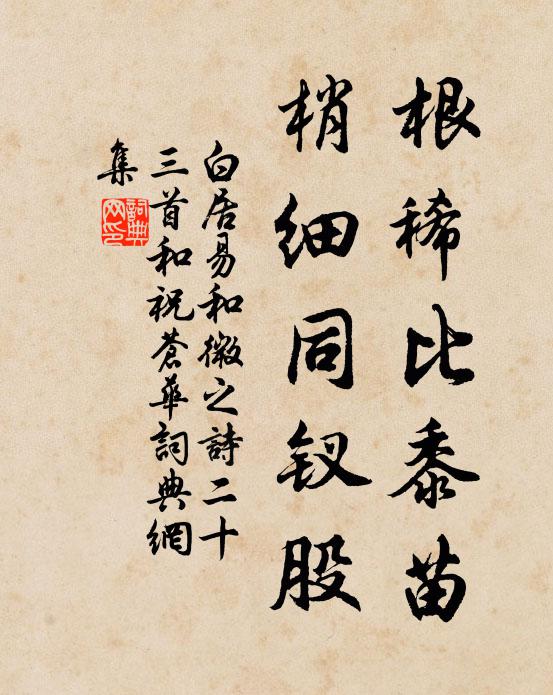 根稀比黍苗
梢细同钗股
白居易和微之詩二十
三首和祝蒼華詞典網
集
詞典
网印